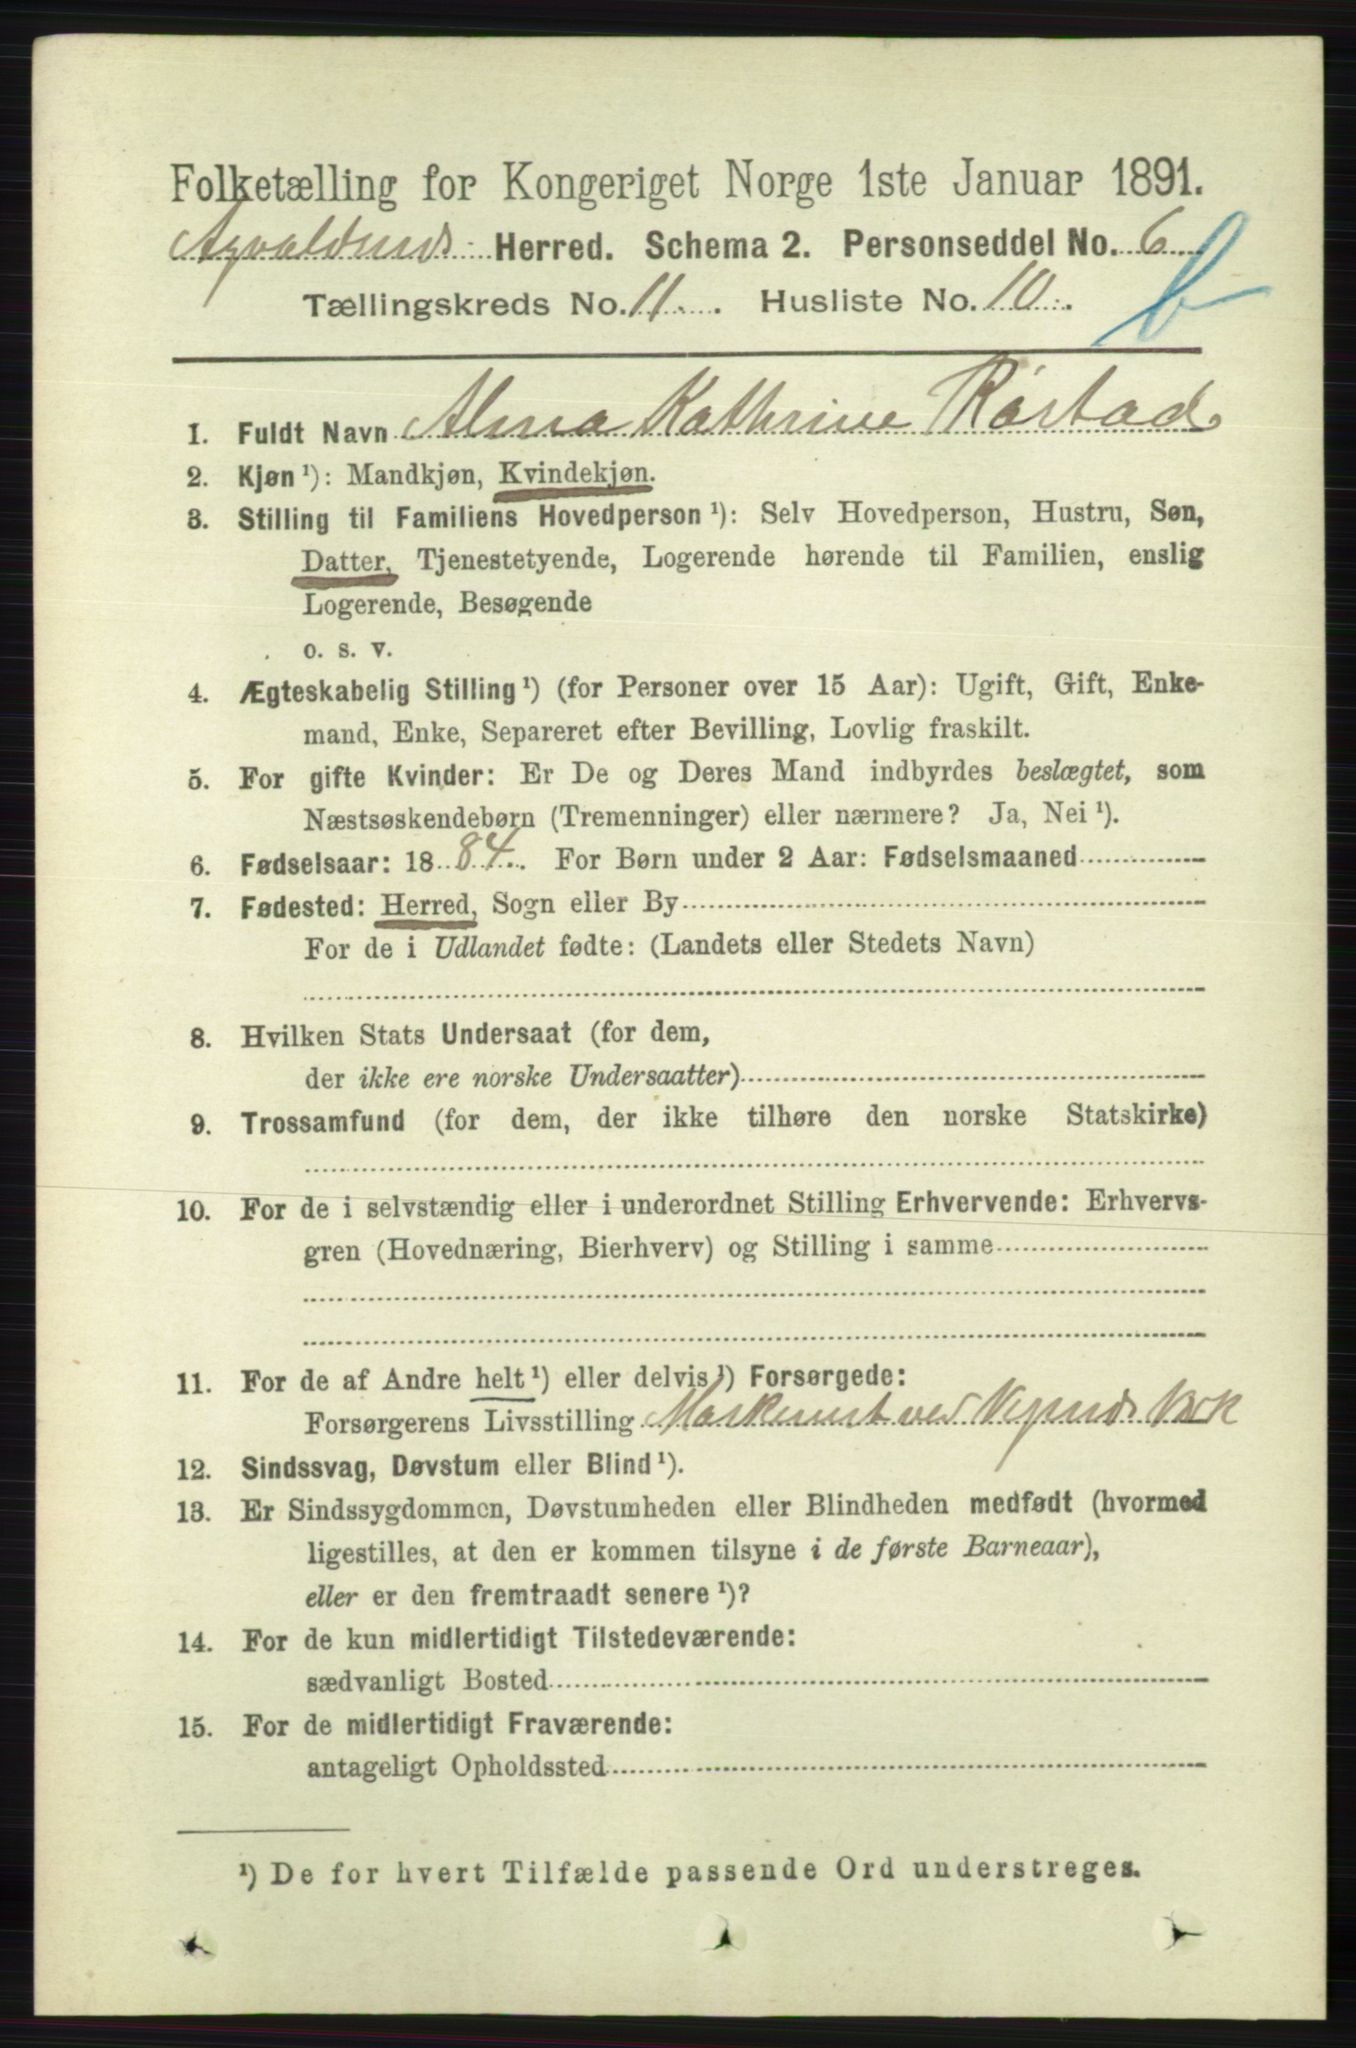 Folketælling for Kongeriget Norge 1ste Januar 1891.
Avaldsnes Herred. Schema 2. Personseddel No. 6
b
Tællingskreds No. 11. Husliste No. 10.
1. Fuldt Navn Alma Kathrine Rørstad
2. Kjøn ¹): Mandkjøn, Kvindekjøn.
3. Stilling til Familiens Hovedperson ¹): Selv Hovedperson, Hustru, Søn,
Datter, Tjenestetyende, Logerende hørende til Familien, enslig
Logerende, Besøgende
o. s. v.
4. Ægteskabelig Stilling ¹) (for Personer over 15 Aar): Ugift, Gift, Enke-
mand, Enke, Separeret efter Bevilling, Lovlig fraskilt.
5. For gifte Kvinder: Er De og Deres Mand indbyrdes beslægtet, som
Næstsøskendebørn (Tremenninger) eller nærmere? Ja, Nei ¹).
6. Fødselsaar: 1884. For Børn under 2 Aar: Fødselsmaaned
7. Fødested: Herred, Sogn eller By
For de i Udlandet fødte: (Landets eller Stedets Navn)
8. Hvilken Stats Undersaat (for dem,
der ikke ere norske Undersaatter)
9. Trossamfund (for dem, der ikke tilhøre den norske Statskirke)
10. For de i selvstændig eller i underordnet Stilling Erhvervende: Erhvervs-
gren (Hovednæring, Bierhverv) og Stilling i samme
11. For de af Andre helt ¹) eller delvis ¹) Forsørgede:
Forsørgerens Livsstilling Maskinist ved Vigsnes Værk
12. Sindssvag, Døvstum eller Blind ¹).
13. Er Sindssygdommen, Døvstumheden eller Blindheden medfødt (hvormed
ligestilles, at den er kommen tilsyne i de første Barneaar),
eller er den fremtraadt senere ¹)?
14. For de kun midlertidigt Tilstedeværende:
sædvanligt Bosted
15. For de midlertidigt Fraværende:
antageligt Opholdssted
¹) De for hvert Tilfælde passende Ord understreges.